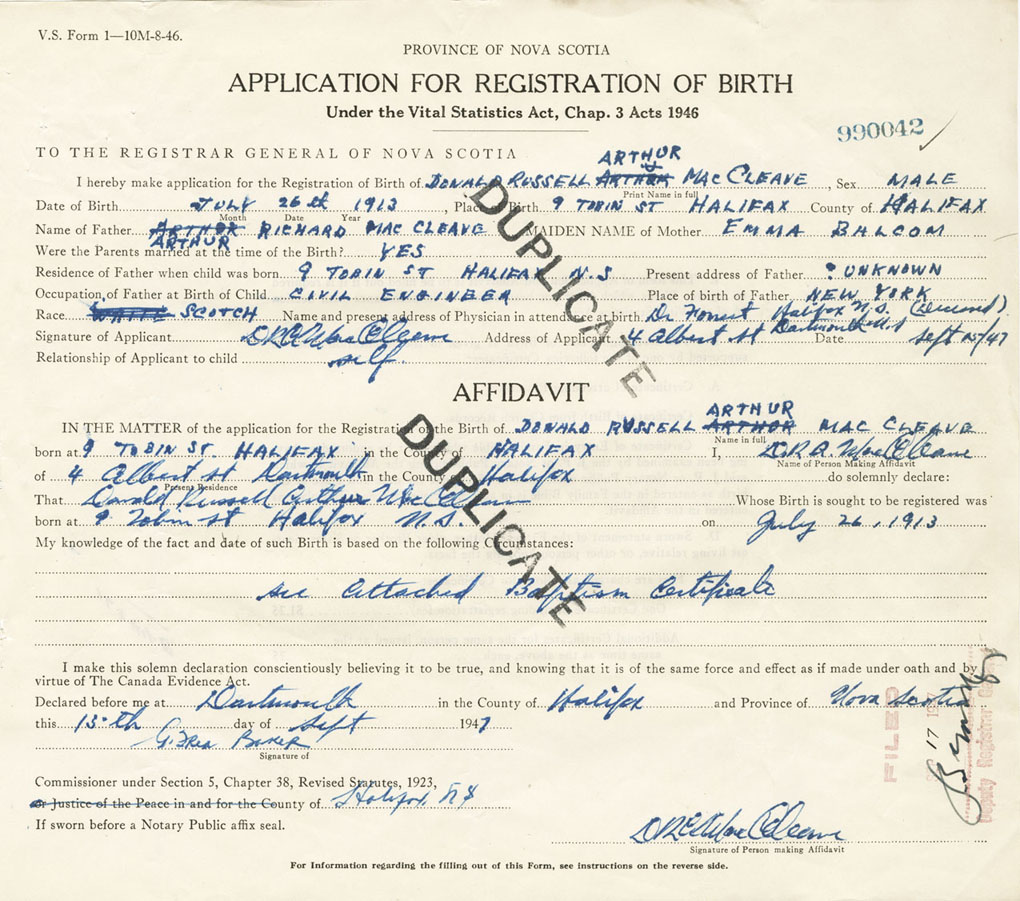 V.S. Form 1—10M-8-46.
PROVINCE OF NOVA SCOTIA
APPLICATION FOR REGISTRATION OF BIRTH
Under the Vital Statistics Act, Chap. 3 Acts 1946
990042
TO THE REGISTRAR GENERAL OF NOVA SCOTIA
ARTHUR
I hereby make application for the Registration of Birth of DONALD RUSSELL ARTHOR MAC CLEAVE, Sex MALE
Print Name in full
Date of Birth JULY 26th 1913, Place of Birth 9 TOBIN ST HALIFAX County of HALIFAX
Month Date Year
Name of Father ARTHOR RICHARD MAC CLEAVE MAIDEN NAME of Mother EMMA BALCOM
ARTHUR
Were the Parents married at the time of the Birth? YES
Residence of Father when child was born 9 TOBIN ST HALIFAX N.S Present address of Father ? UNKNOWN
Occupation of Father at Birth of Child CIVIL ENGINEER Place of birth of Father NEW YORK
Race WHITE SCOTCH Name and present address of Physician in attendance at birth Dr Forrest Halifax N.S. (Deceased)
Signature of Applicant D R A MacCleave Address of Applicant 4 Albert st Dartmouth N.S Date Sept 15/47
Relationship of Applicant to child self
DUPLICATE
AFFIDAVIT
ARTHUR
IN THE MATTER of the application for the Registration of the Birth of DONALD RUSSELL ARTHOR MAC CLEAVE
Name in full
born at 9 TOBIN ST. HALIFAX in the County of HALIFAX I, D.R.A. MacCleave
Name of Person Making Affidavit
of 4 Albert st Dartmouth in the County of Halifax do solemnly declare:
Present Residence
That Donald Russell Arthur MacCleave Whose Birth is sought to be registered was
born at 9 Tobin st Halifax N.S. on July 26, 1913
DUPLICATE
My knowledge of the fact and date of such Birth is based on the following Circumstances:
see attached Baptism Certificate
I make this solemn declaration conscientiously believing it to be true, and knowing that it is of the same force and effect as if made under oath and by
virtue of The Canada Evidence Act.
Declared before me at Dartmouth in the County of Halifax and Province of Nova Scotia
this 15th day of Sept 1947
Baker
Signature of
FILED
17
Deputy Registrar General
Commissioner under Section 5, Chapter 38, Revised Statutes, 1923,
or Justice of the Peace in and for the County of Halifax, NS
If sworn before a Notary Public affix seal.
D R A MacCleave
Signature of Person making Affidavit
For Information regarding the filling out of this Form, see instructions on the reverse side.